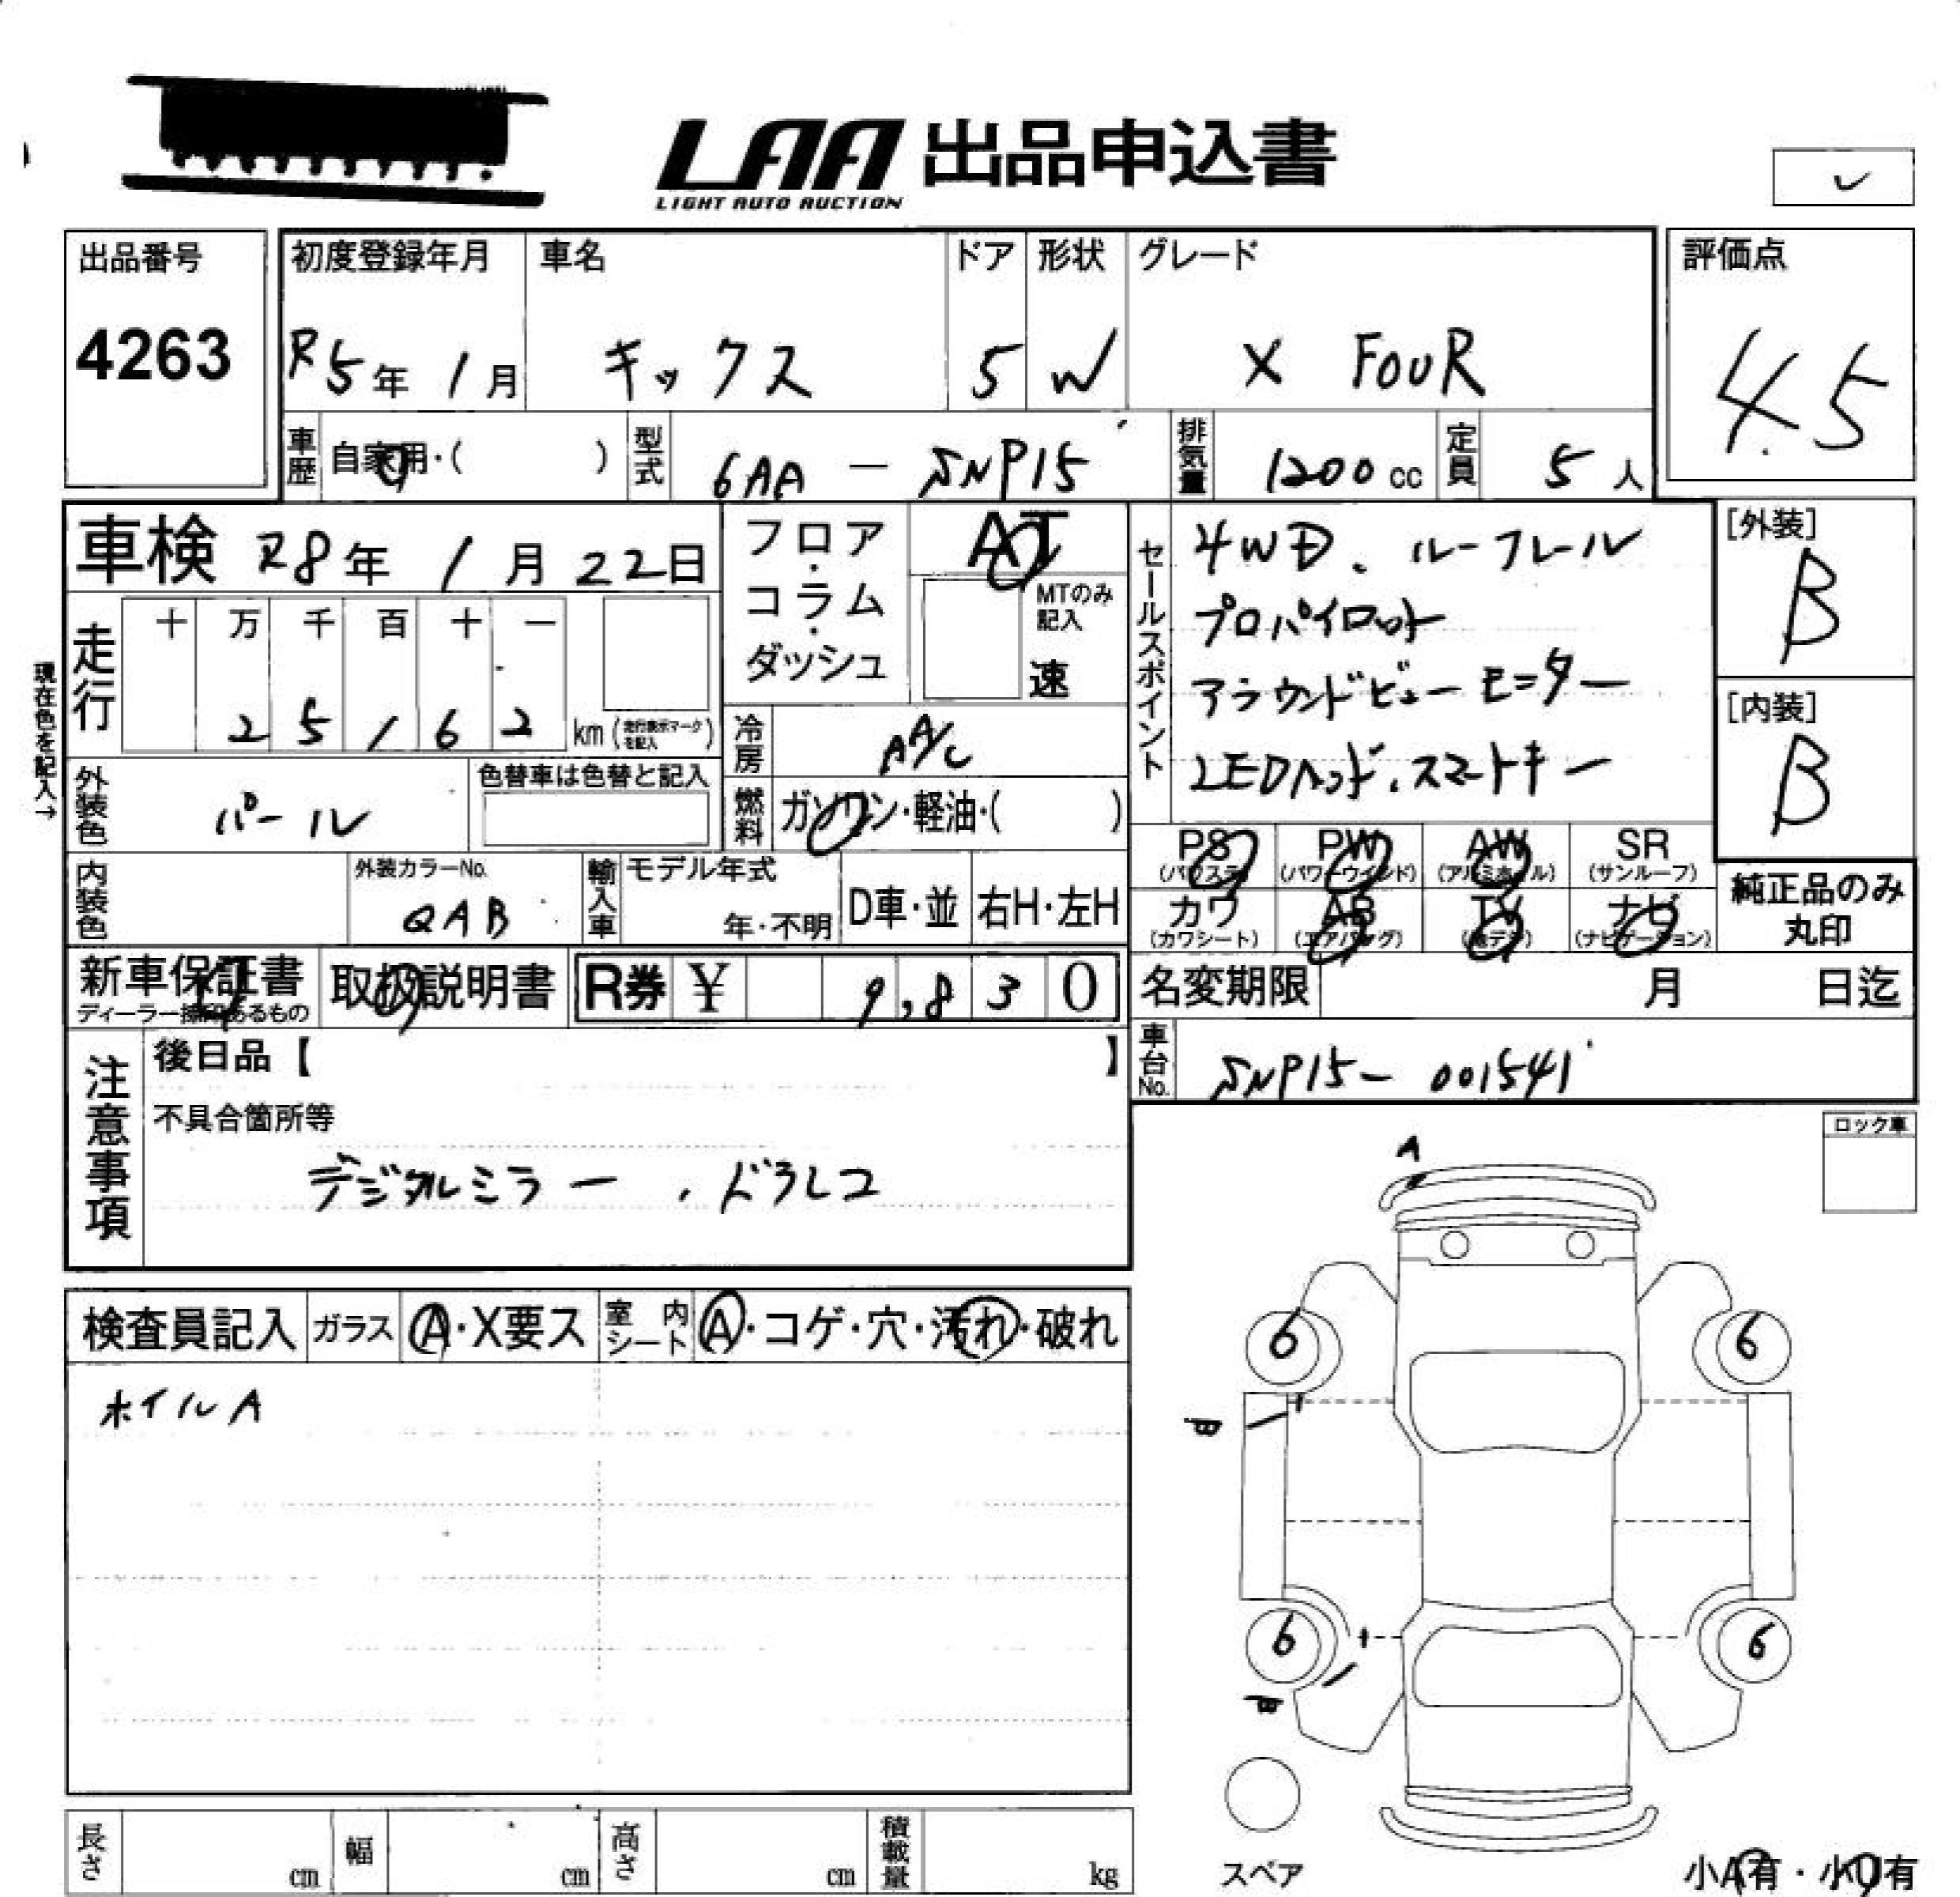 LAA 出品申込書
LIGHT AUTO AUCTION
出品番号
4263
初度登録年月
R5年 1月
車名
キックス
ドア
5
形状
W
グレード
X FOUR
評価点
4.5
車歴
自家用・( )
型式
6AA - SNP15
排気量
1200 cc
定員
5 人
車検 R8年 1月 22日
フロア・コラム・ダッシュ
AT
MTのみ記入
速
セールスポイント
4WD、ルーフレール
プロパイロット
アラウンドビューモニター
LEDヘッド、スマートキー
[外装]
B
[内装]
B
現在色を記入→
走行
十 万 千 百 十 一
2 5 1 6 2
km (走行表示マークを記入)
冷房
AA/C
外装色
パール
色替車は色替と記入
燃料
ガソリン・軽油・( )
内装色
外装カラーNo.
QAB
輸入車
モデル年式
年・不明
D車・並
右H・左H
PS (パワステ)
PW (パワーウインド)
AW (アルミホイル)
SR (サンルーフ)
カワ (カワシート)
AB (エアバッグ)
TV (地デジ)
ナビ (ナビゲーション)
純正品のみ丸印
新車保証書
ディーラー捺印あるもの
取扱説明書
R券 ¥ 9,830
名変期限 月 日迄
車台No.
SNP15- 001541
注意事項
後日品【 】
不具合箇所等
デジタルミラー、ドラレコ
ロック車
検査員記入
ガラス
A・X要ス
室内シート
A・コゲ・穴・汚れ・破れ
ホイルA
A
6
6
B
6
6
B
スペア
長さ cm
幅 cm
高さ cm
積載量 kg
小A有・小U有